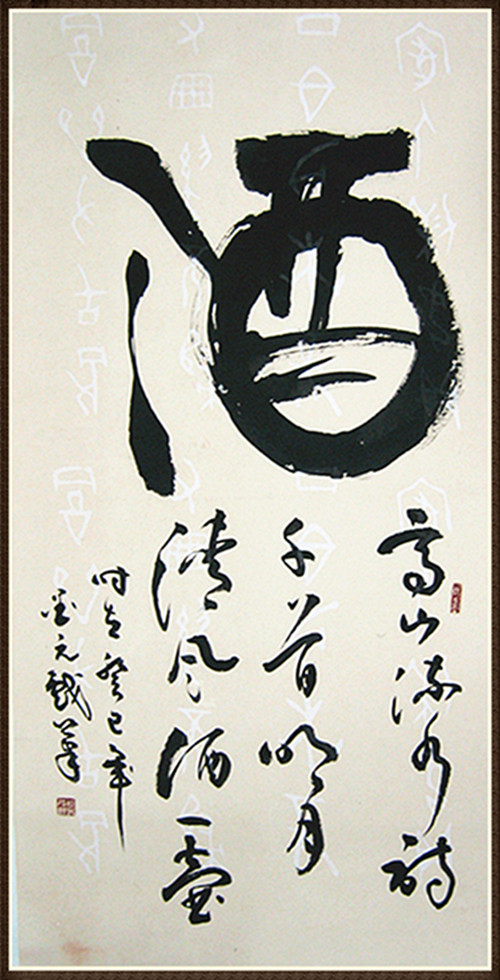 酒
高山流水詩
千首明月
清風酒一壺
时在癸巳年
元戲筆